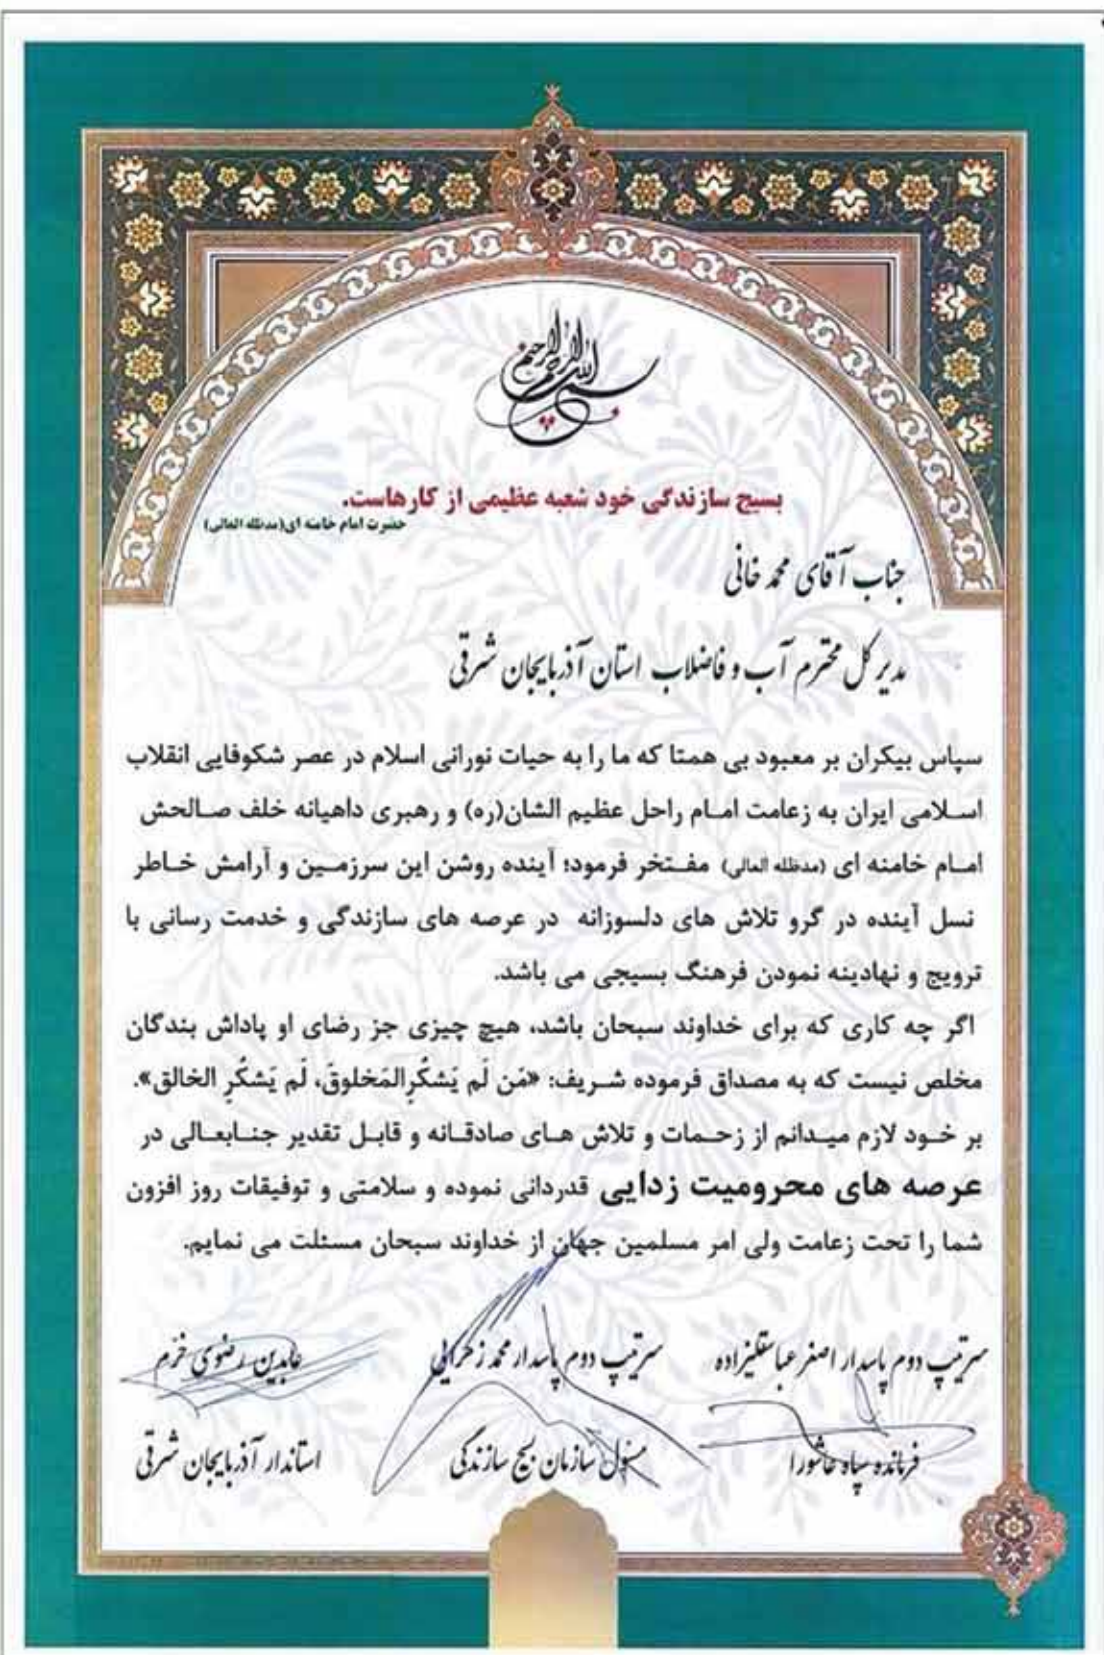 بسم الله الرحمن الرحیم
بسیج سازندگی خود شعبه عظیمی از کارهاست.
حضرت امام خامنه ای(مدظله العالی)
جناب آقای محمد خانی
مدیر کل محترم آب و فاضلاب استان آذربایجان شرقی
سپاس بیکران بر معبود بی همتا که ما را به حیات نورانی اسلام در عصر شکوفایی انقلاب
اسلامی ایران به زعامت امام راحل عظیم الشان(ره) و رهبری داهیانه خلف صالحش
امام خامنه ای (مدظله العالی) مفتخر فرمود؛ آینده روشن این سرزمین و آرامش خاطر
نسل آینده در گرو تلاش های دلسوزانه در عرصه های سازندگی و خدمت رسانی با
ترویج و نهادینه نمودن فرهنگ بسیجی می باشد.
اگر چه کاری که برای خداوند سبحان باشد، هیچ چیزی جز رضای او پاداش بندگان
مخلص نیست که به مصداق فرموده شریف: «مَن لَم یَشکُرِالمَخلوقَ، لَم یَشکُرِ الخالق».
بر خود لازم میدانم از زحمات و تلاش های صادقانه و قابل تقدیر جنابعالی در
عرصه های محرومیت زدایی قدردانی نموده و سلامتی و توفیقات روز افزون
شما را تحت زعامت ولی امر مسلمین جهان از خداوند سبحان مسئلت می نمایم.
سرتیپ دوم پاسدار اصغر عباسقلیزاده
سرتیپ دوم پاسدار محمد زهرائی
عابدین رضوی خرم
فرمانده سپاه عاشورا
مسئول سازمان بسیج سازندگی
استاندار آذربایجان شرقی